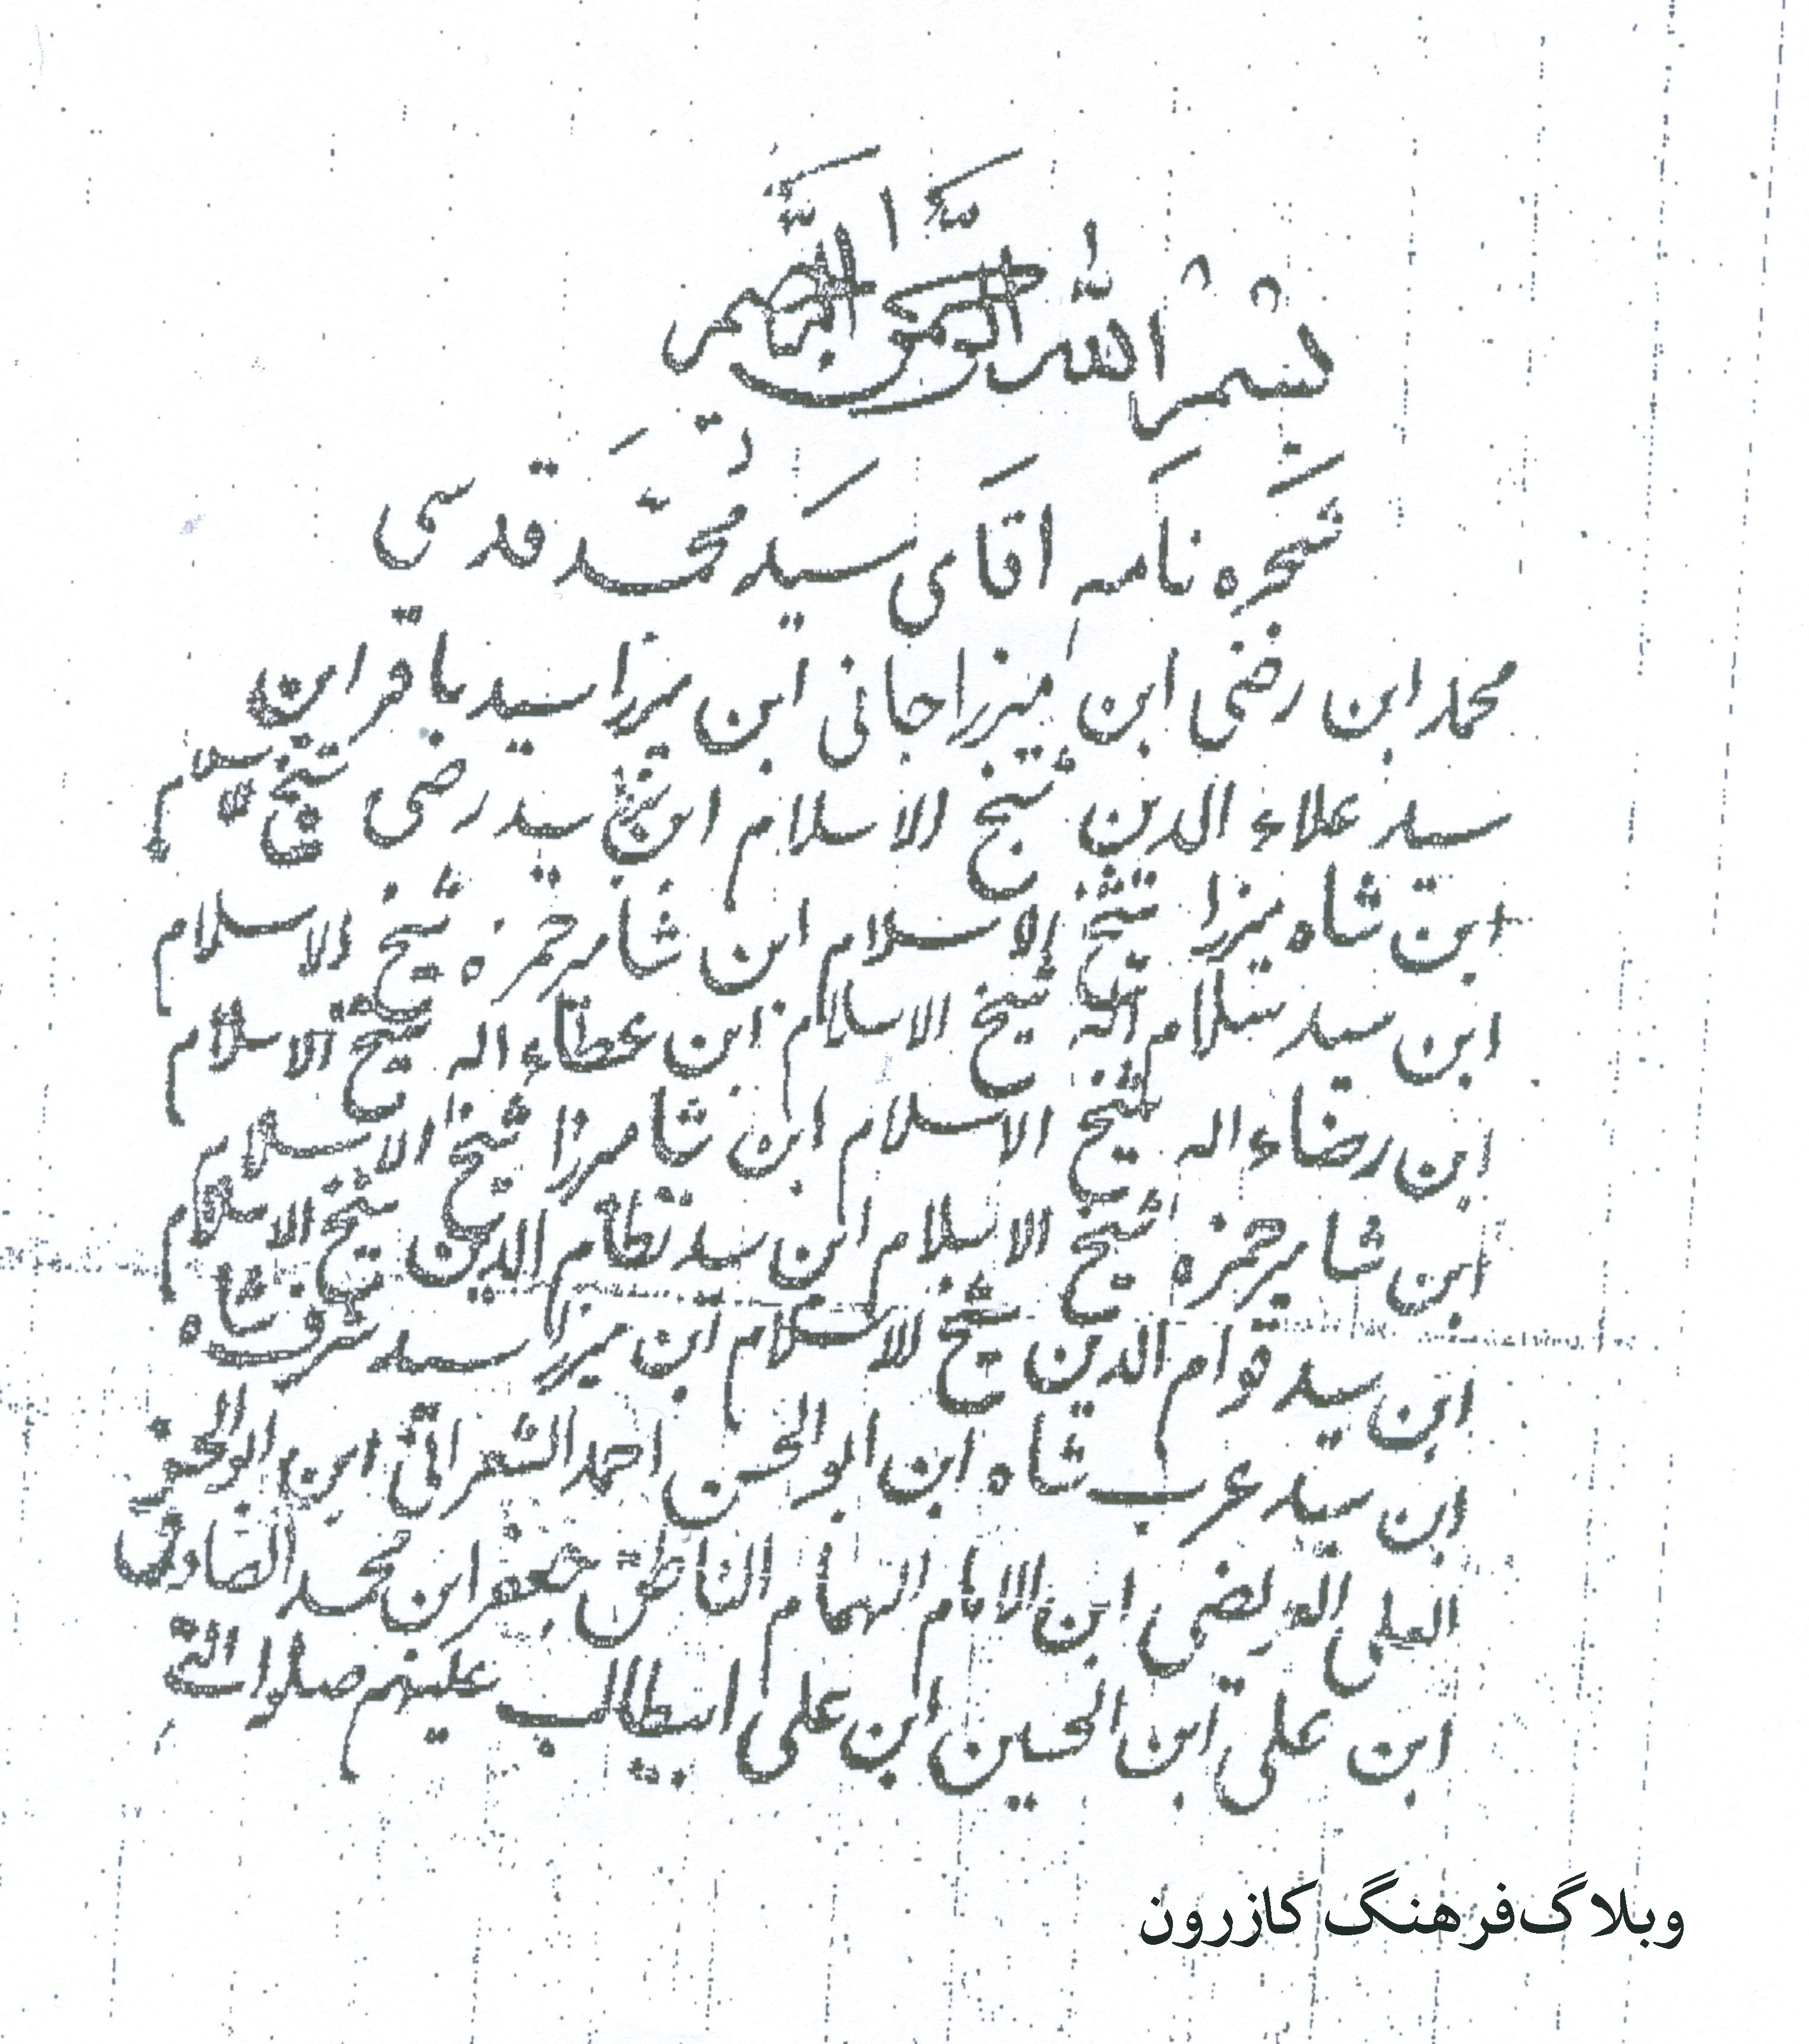 بسم الله الرحمن الرحیم
شجره نامه اقای سید محمد قدسی
محمد ابن رضی ابن میرزا جانی ابن میرزا سید باقر ابن
سید علاء الدین شیخ الاسلام ابن سید رضی شیخ الاسلام
ابن شاه میرزا شیخ الاسلام ابن شامیر حمزه شیخ الاسلام
ابن سید سلام اله شیخ الاسلام ابن عطاء اله شیخ الاسلام
ابن رضاء اله شیخ الاسلام ابن شا میرزا شیخ الاسلام
ابن شا میر حمزه شیخ الاسلام ابن سید نظام الدین شیخ الاسلام
ابن سید قوام الدین شیخ الاسلام ابن میرزا سید شرف شاه
ابن سید عرب شاه ابن ابو الحسن احمد الشعرانی ابن ابو الحسن
العلی العریضی ابن الامام الهمام الناطق جعفر ابن محمد الصادق
ابن علی ابن الحسین ابن علی ابیطالب علیهم صلوات الله
وبلاگ فرهنگ کازرون